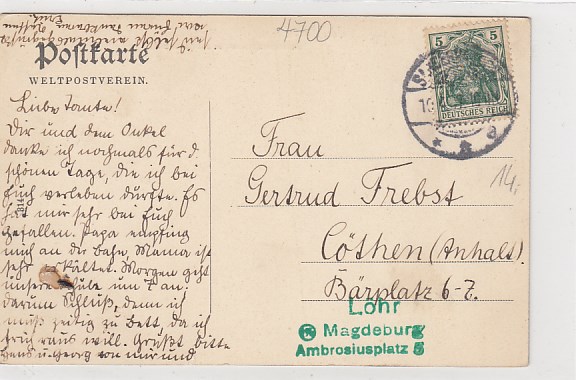 4700
Postkarte
WELTPOSTVEREIN.
Liebe Tante!
Dir und dem Onkel
danke ich nochmals für d.
schönen Tage, die ich bei
Euch verleben dürfte. Es
hat mir sehr bei Euch
gefallen. Papa empfing
mich an der Bahn, Mama ist
sehr erkältet. Morgen geht
unsere Schule um 7 an.
darum Schluß, denn ich
muß zeitig zu Bett, da ich
früh raus will. Grüßt bitte
Hans u. Georg von mir und
5 5
DEUTSCHES REICH
Frau
Gertrud Frebst
Cöthen (Anhalt).
Bärplatz 6-7.
14,
Lohr
Magdeburg
Ambrosiusplatz 5